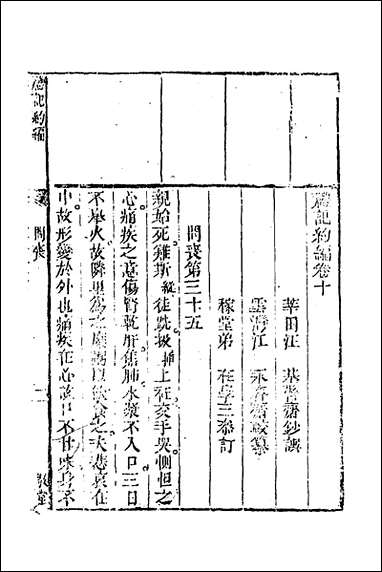 禮記約編卷十
莘田汪 基 鈔
江 永 校纂
稼堂弟 在 三 叅訂
問喪第三十五
親始死雞斯 徒跣扱 上衽交手哭惻怛之
心痛疾之意傷腎乾肝焦肺水漿不入口三日
不舉火故隣里爲之糜粥以飲食之夫悲哀在
中故形變於外也痛疾在心故口不甘味身不
禮記約編
問喪